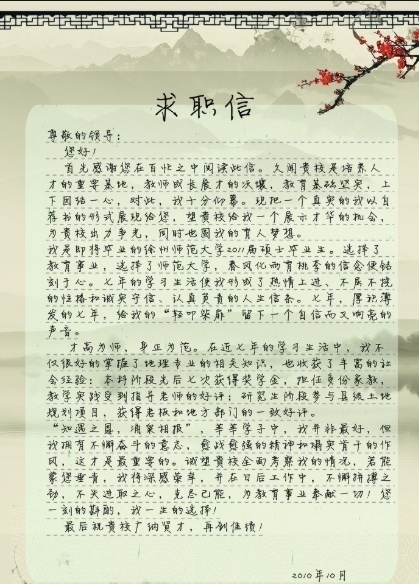 求职信
尊敬的领导：
您好！
首先感谢您在百忙之中阅读此信。久闻贵校是培养人
才的重要基地，教师成长展才的沃壤，教育基础坚实，上
下团结一心，对此，我十分仰慕。现把一个真实的我以自
荐书的形式展现给您，望贵校给我一个展示才华的机会，
为贵校出力争光，同时也圆我的育人梦想。
我是即将毕业的徐州师范大学2011届硕士毕业生。选择了
教育事业，选择了师范大学，春风化雨育桃李的信念便铭
刻于心。七年的学习生活使我形成了热情上进、不屈不挠
的性格和诚实守信、认真负责的人生信条。七年，厚积薄
发的七年，给我的“轻叩柴扉”留下一个自信而又响亮的
声音。
才高为师，身正为范。在近七年的学习生活中，我不
仅很好的掌握了地理专业的相关知识，也收获了丰富的社
会经验：本科阶段先后七次获得奖学金，担任多份家教，
教学实践受到指导老师的好评；研究生阶段参与县级土地
规划项目，获得老板和地方部门的一致好评。
“知遇之恩，涌泉相报”，莘莘学子中，我并非最好，但
我拥有不懈奋斗的意志，愈战愈强的精神和塌实肯干的作
风，这才是最重要的。诚望贵校全面考察我的情况，若能
蒙您垂青，我将深感荣幸，并在日后工作中，不懈拼搏之
劲，不失进取之心，克己己能，为教育事业奉献一切！您
一刻的斟酌，我一生的选择！
最后祝贵校广纳贤才，再创佳绩！
2010年10月